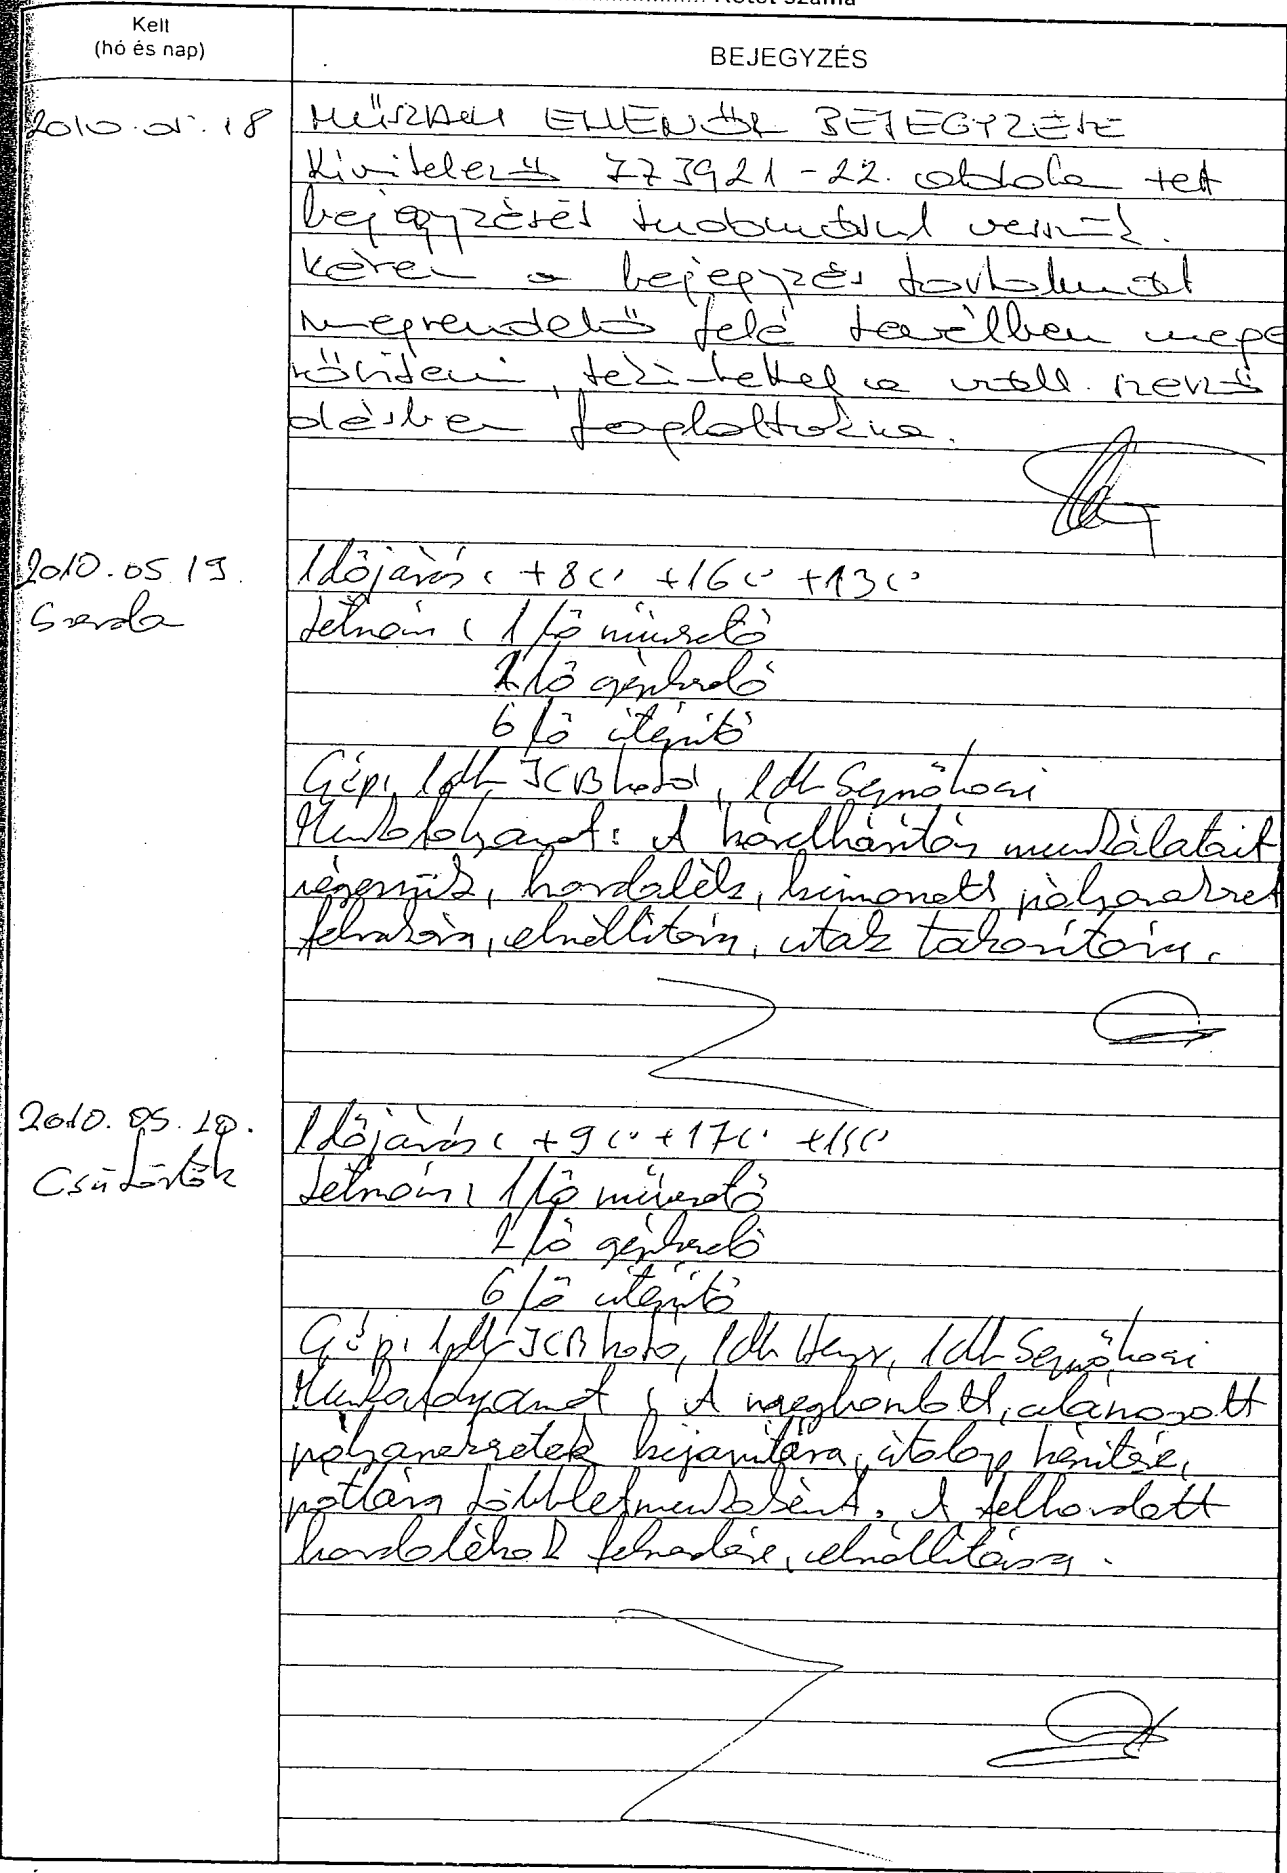 Kötet száma
Kelt
(hó és nap)
BEJEGYZÉS
2010.05.18
MŰSZAKI ELLENŐR BEJEGYZÉSE
Kivitelező 773921-22. oldala tett
bejegyzését tudomásul veszi
Kérem a bejegyzés tartalmát
megrendelő felé levélben mege
rősíteni, tekintettel a váll. szerző
désben foglaltakra.
2010.05.19.
Szerda
Időjárás: +8C° +16C° +13C°
Létszám: 1 fő művezető
1 fő gépkezelő
6 fő útépítő
Gép: 1db JCB kotró, 1db Seprőkocsi
Munkafolyamat: A kárelhárítás munkálatait
végezzük, hordalék, kimosott pályaszerkezet
felrakása, elszállítása, utak takarítása.
2010.05.20.
Csütörtök
Időjárás: +9C° +17C° +15C°
Létszám: 1 fő művezető
1 fő gépkezelő
6 fő útépítő
Gép: 1db JCB kotró, 1db Henger, 1db Seprőkocsi
Munkafolyamat: A megbomlott, alámosott
pályaszerkezetek kijavítása, útalap
pótlása többletmunkaként. A felhordott
hordalékok felszedése, elszállítása.